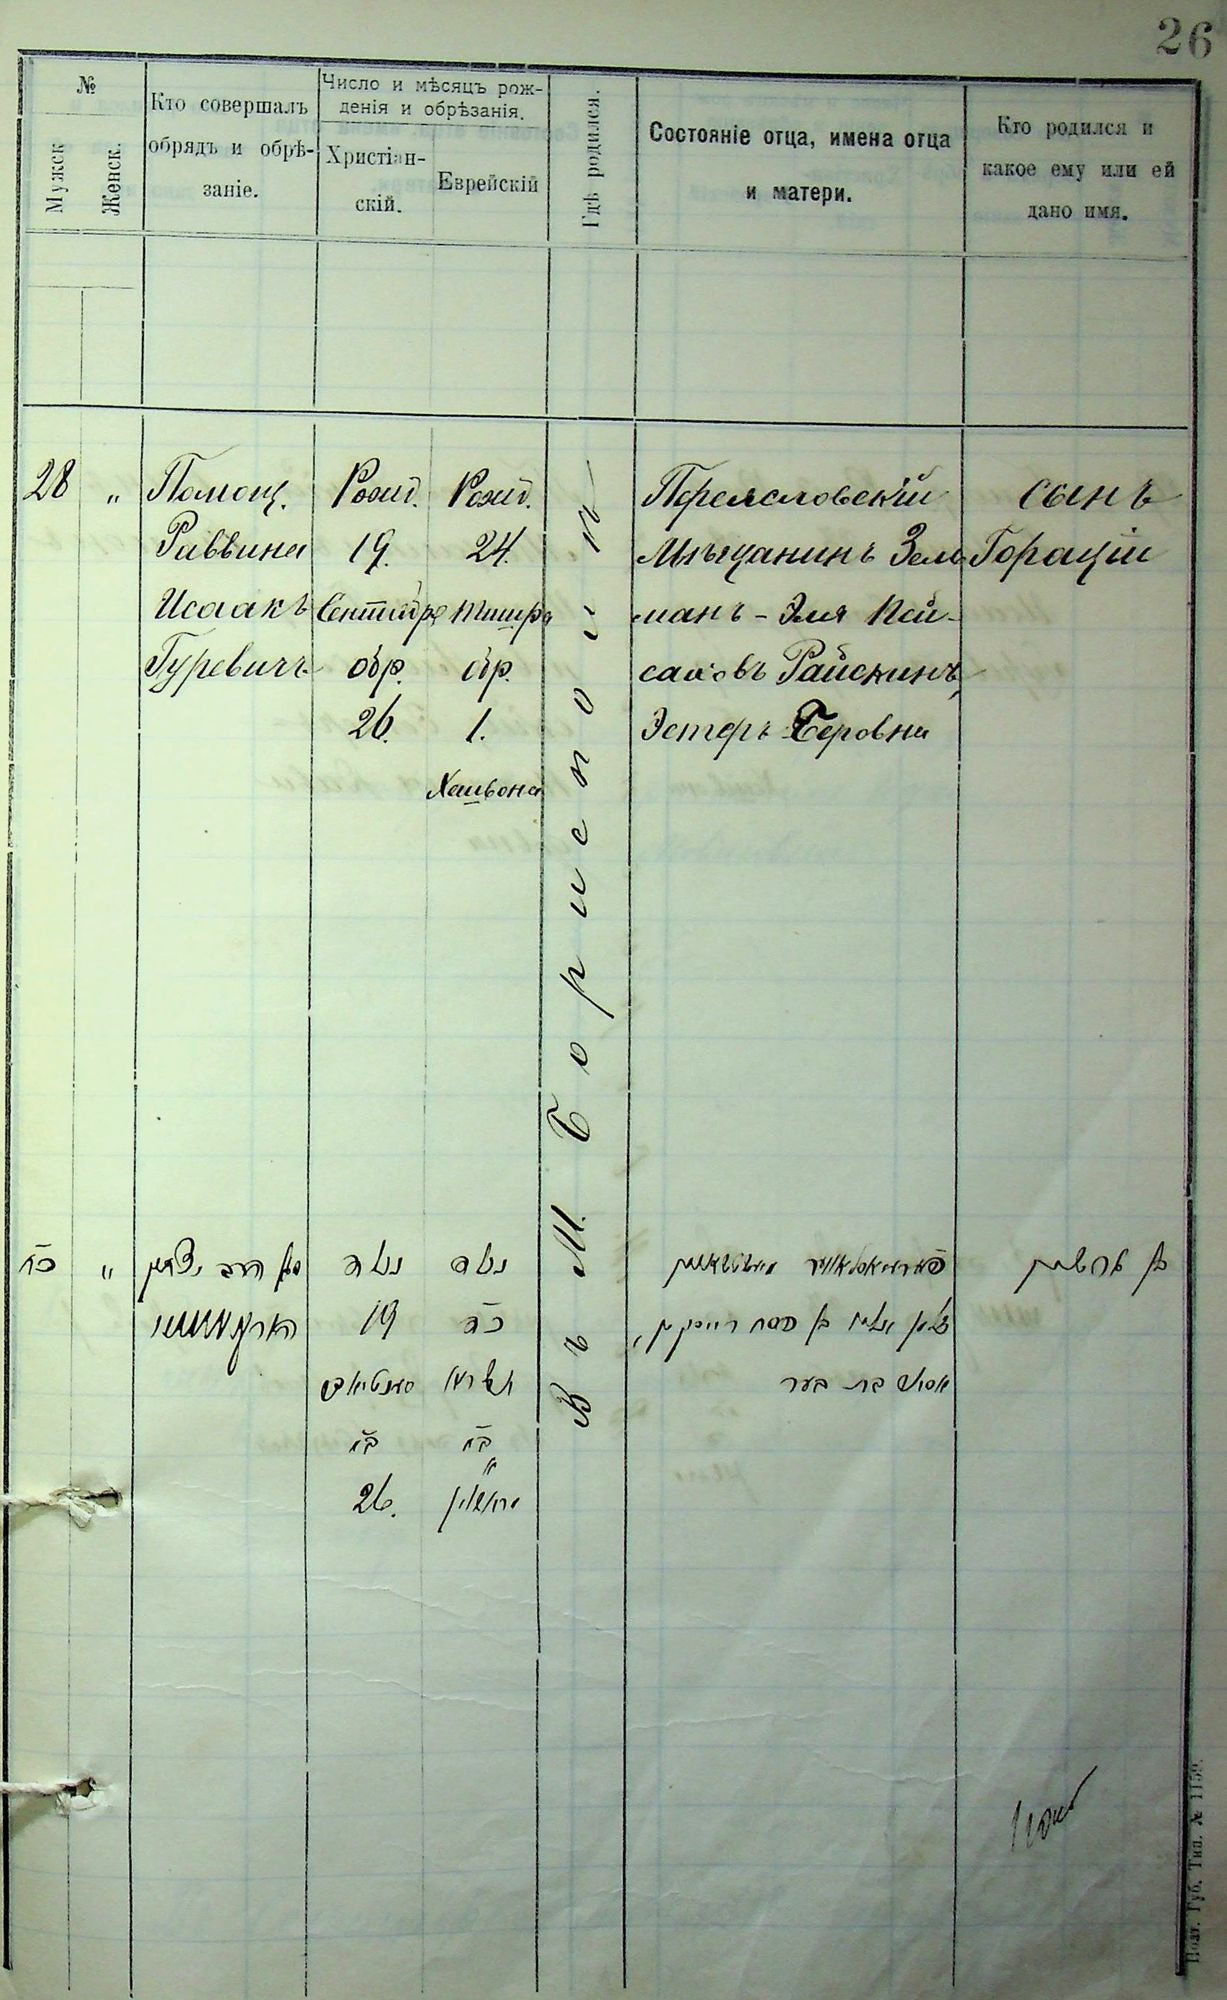 26
№
Мужск
Женск.
Кто совершалъ
обрядъ и обрѣ-
заніе.
Число и мѣсяцъ рож-
денія и обрѣзанія.
Христіан-
скій.
Еврейскій
Гдѣ родился.
Состояніе отца, имена отца
и матери.
Кто родился и
какое ему или ей
дано имя.
28 „ Помощ.
Раввина
Исаакъ
Гуревичъ
Рожд.
19.
Сентября
обр.
26.
Рожд.
24.
Тишра
обр.
1.
Хешвона
Въ М. Борисполи
Переяславскій
Мѣщанинъ Зель
манъ-Эля Пей-
саховъ Райскинъ,
Эстеръ Беровна
сынъ
Горацій
כח „
נולד
19
נולד
כד
26.
בן פסח
אסתר בת בער
בן
Полт. Губ. Тип. № 1159.